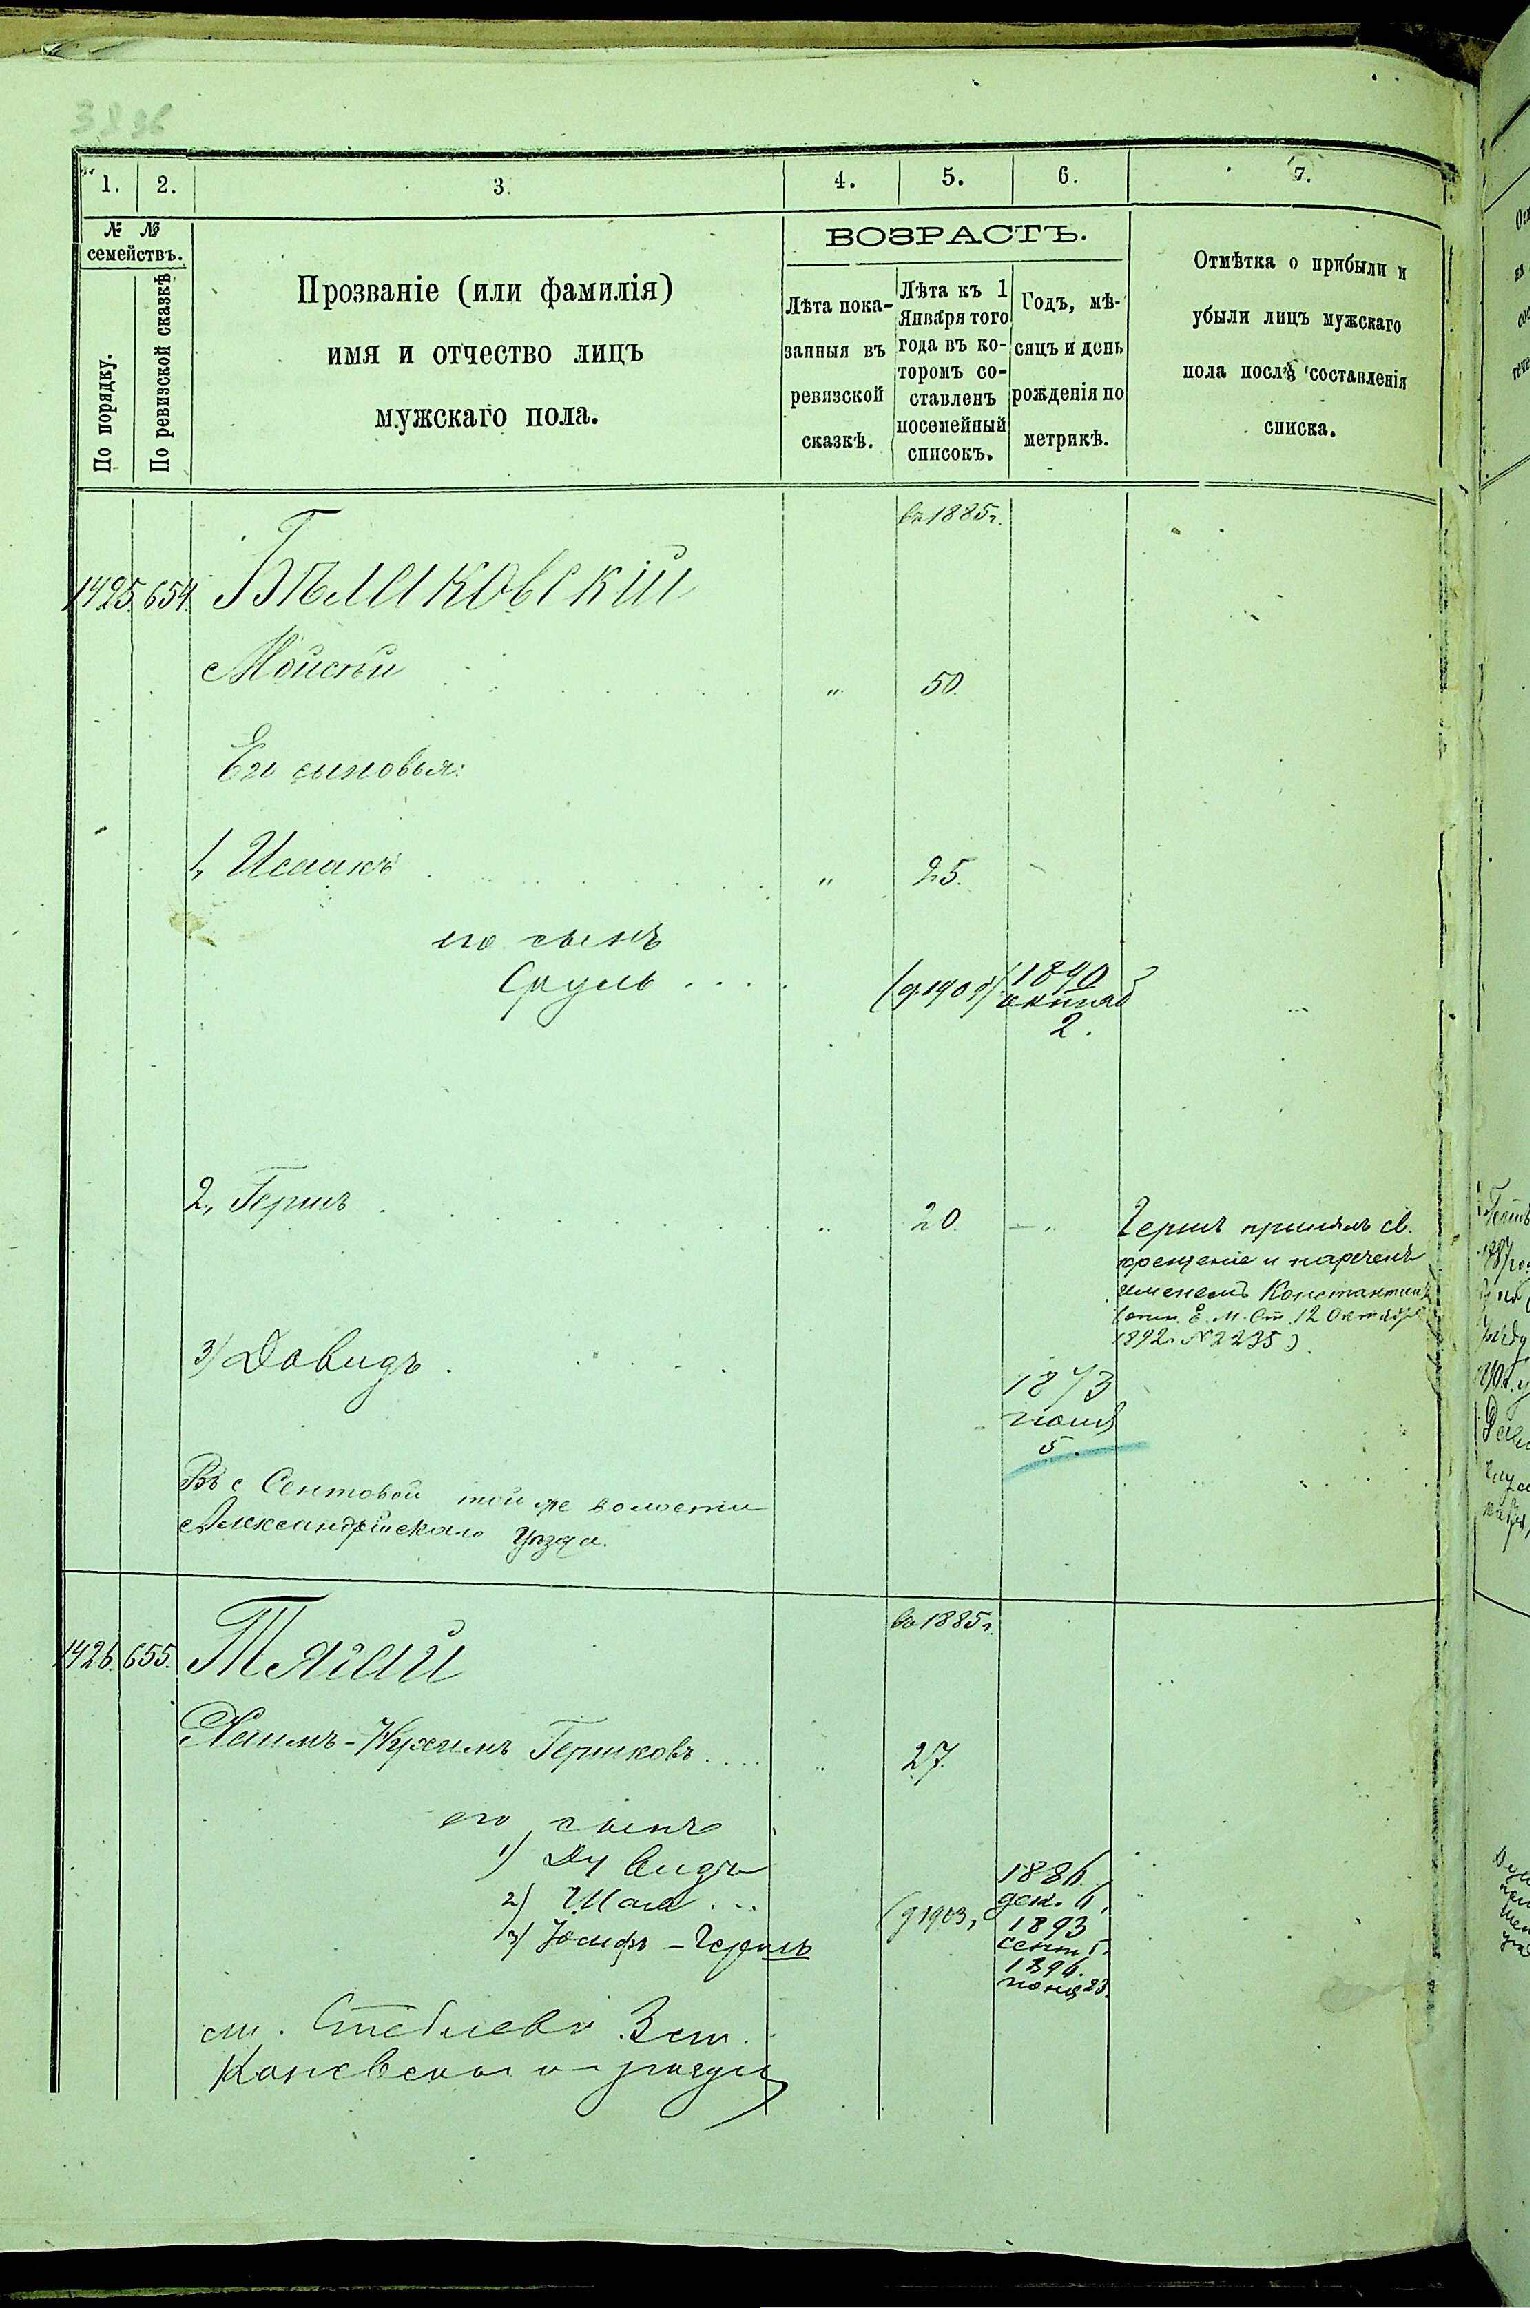 1. 2. 3. 4. 5. 6. 7.
№ №
семействъ.
По порядку.
По ревизской сказкѣ
Прозваніе (или фамилія)
имя и отчество лицъ
мужскаго пола.
ВОЗРАСТЪ.
Лѣта пока-
занныя въ
ревизской
сказкѣ.
Лѣта къ 1
Января того
года въ ко-
торомъ со-
ставленъ
посемейный
списокъ.
Годъ, мѣ-
сяцъ и день
рожденія по
метрикѣ.
Отмѣтка о прибыли и
убыли лицъ мужскаго
пола послѣ составленія
списка.
въ 1885 г.
1425. 654. Бѣлаковскій
Мойсѣй " 50.
Его сыновья:
1, Исаакъ " 25.
его сынъ
Сруль (г. 190
1890
октяб
2.
2, Гершъ " 20.
Гершъ принялъ св.
крещеніе и нареченъ
именемъ Константинъ
12 Октября
1892. № 2235)
3) Давидъ
1873
5.
Въ с Сентовой той же волости
Александрійскаго Уѣзда.
въ 1885 г.
1426. 655. Тягай
Хаимъ- Гершковъ 27.
его сынъ
1) Давидъ
1886.
дек. 6.
2)
(г 1903,
1893
сент 5.
3) Іосифъ-Гершъ
1896.
23.
Каневскаго уѣзда